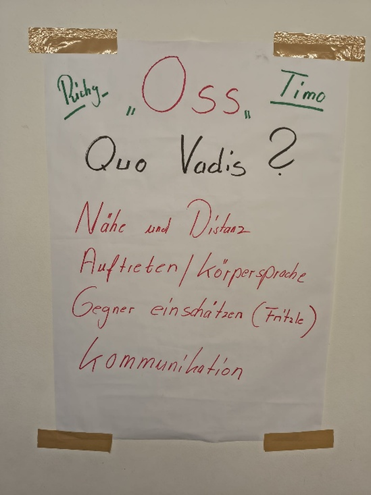 Richy
„Oss„
Timo
Quo Vadis ?
Nähe und Distanz
Auftreten/Körpersprache
Gegner einschätzen (Fritzle)
Kommunikation